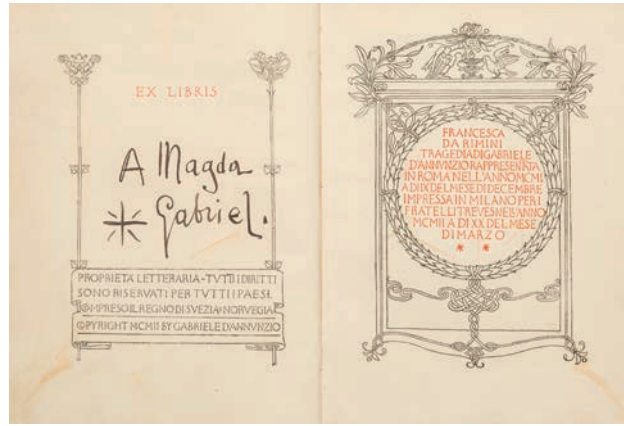 EX LIBRIS
A Magda
Gabriel.
PROPRIETÀ LETTERARIA-TUTTI I DIRITTI
SONO RISERVATI PER TUTTI I PAESI.
COMPRESO IL REGNO DI SVEZIA E NORVEGIA
COPYRIGHT MCMII BY GABRIELE D'ANNVNZIO
FRANCESCA
DA RIMINI
TRAGEDIA DI GABRIELE
D'ANNVNZIO RAPPRESENTATA
IN ROMA NELL'ANNO MCMI
A DI IX DEL MESE DI DECEMBRE
IMPRESSA IN MILANO PER I
FRATELLI TREVES NELL'ANNO
MCMII A DI XX DEL MESE
DI MARZO